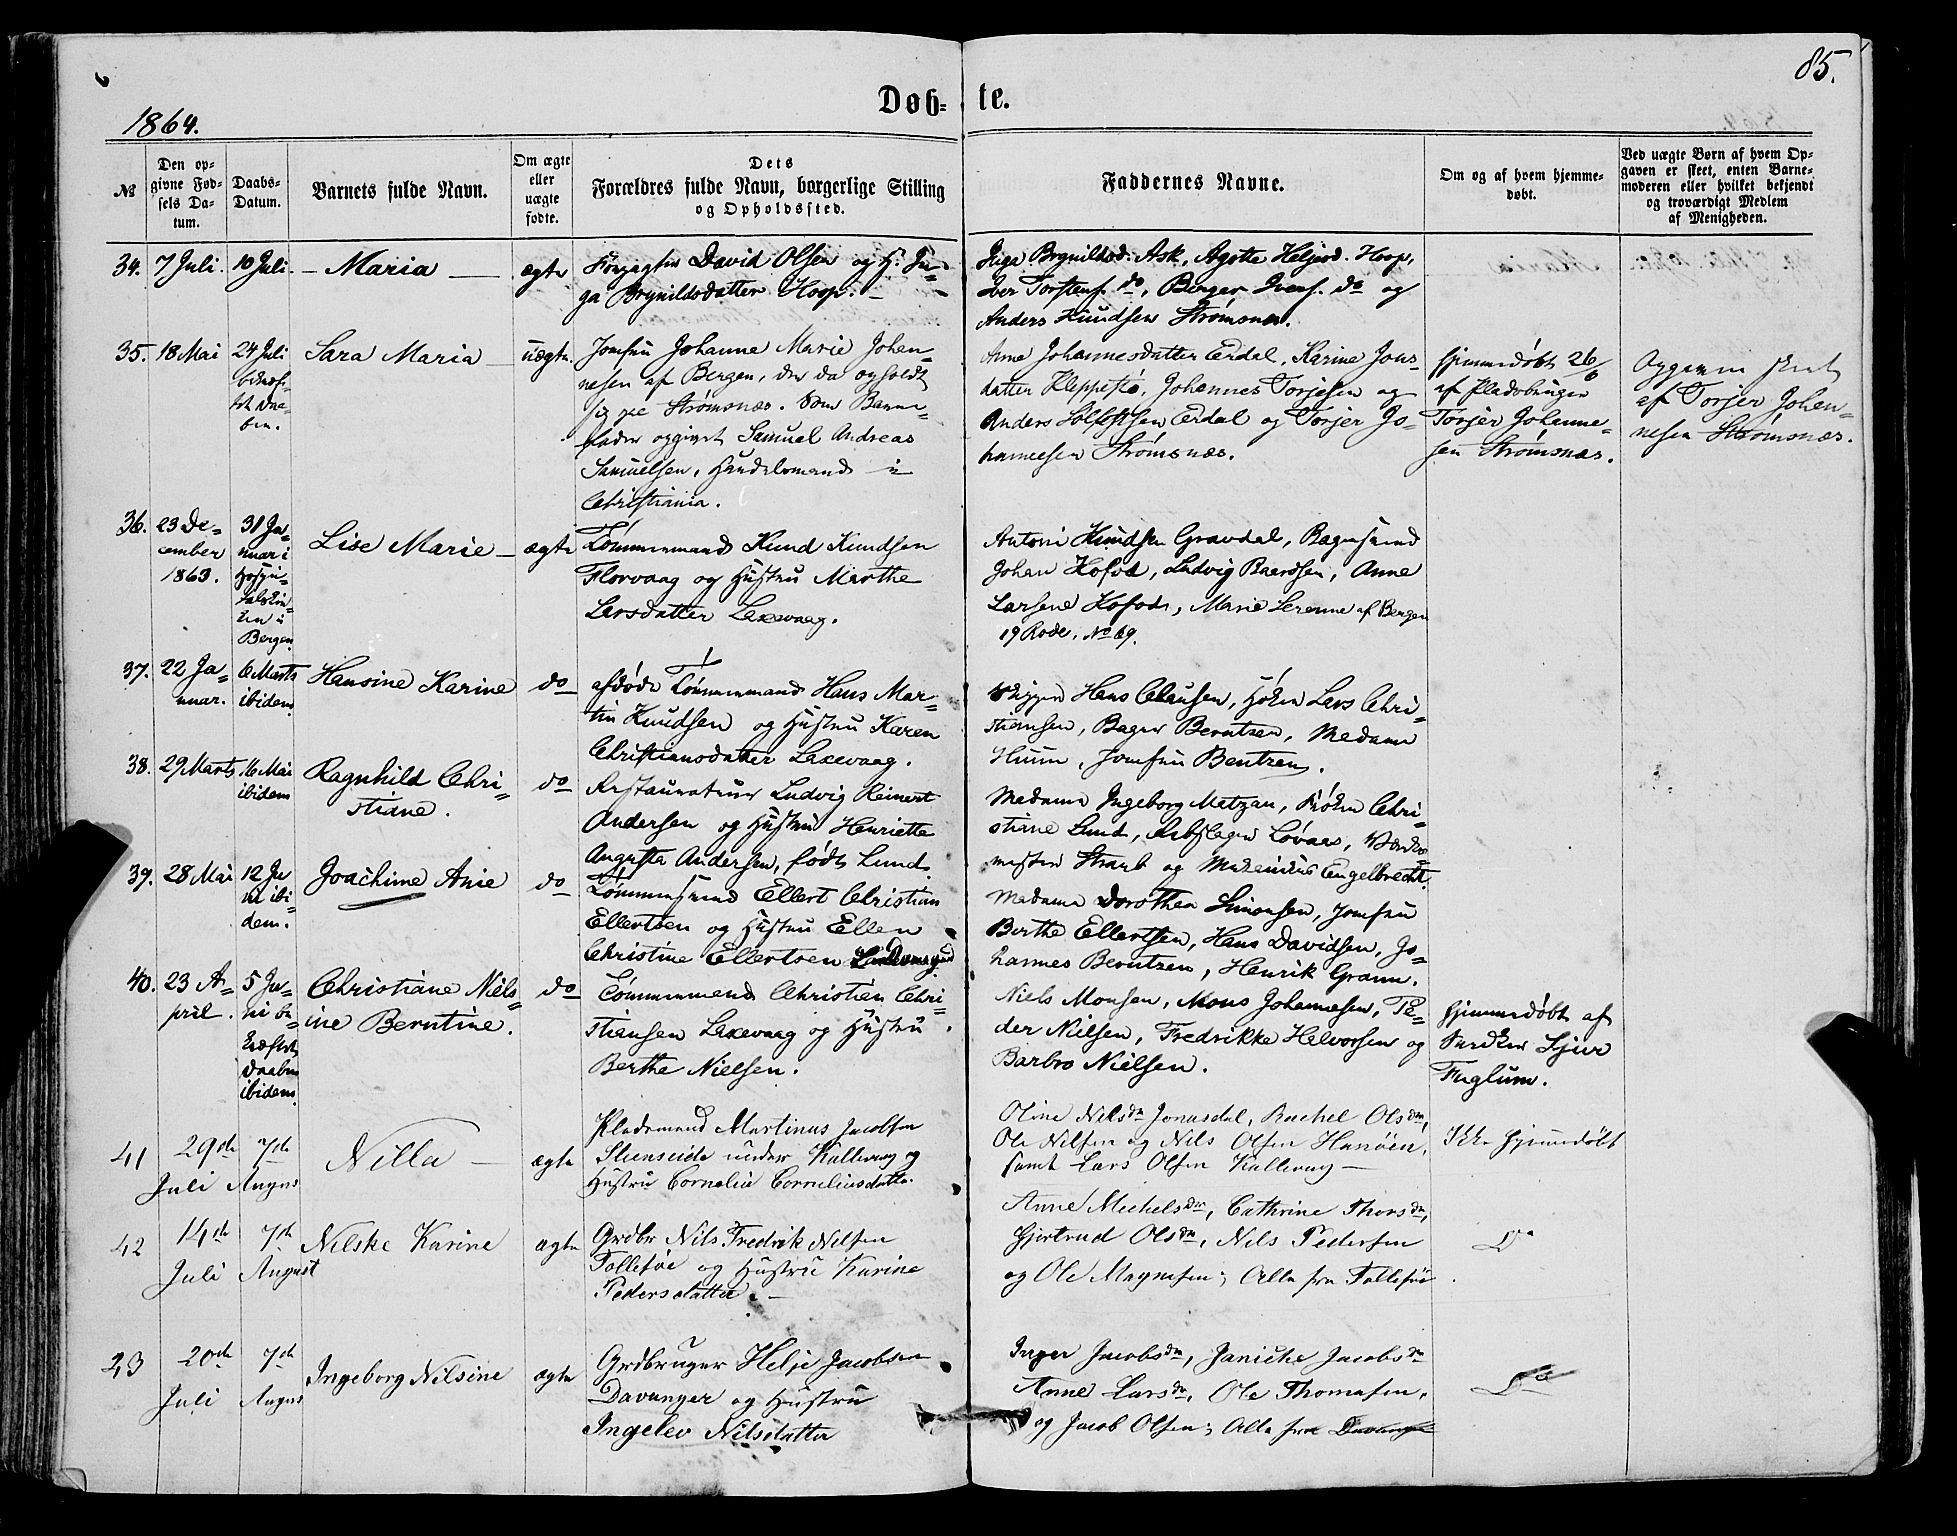 85.
Døb- te.
1864.
№
Den op-
givne Fød-
sels Da-
tum.
Daabs-
Datum.
Barnets fulde Navn.
Om ægte
eller
uægte
fødte.
Dets
Forældres fulde Navn, borgerlige Stilling
og Opholdssted.
Faddernes Navne.
Om og af hvem hjemme-
døbt.
Ved uægte Børn af hvem Op-
gaven er skeet, enten Barne-
moderen eller hvilket bekjendt
og troværdigt Medlem
af Menigheden.
34. 7 Juli. 10 Juli. – Maria – ægte
Forpagter David Olsen og H. In-
ga Brynildsdatter Hoop. –
Inga Brynildsd. Ask, Agotte Heljesd. Hoop,
Iver Torstens. do, Berger Ivers. do og
Anders Knudsen Strømsnes.
35. 18 Mai 24 Juli
Sara Maria – uægte.
Jomfru Johanne Marie Johan-
nesen af Bergen, der da opholdt
sig paa Strømsnæs. Som Barne-
fader opgivet Samuel Andreas
Samuelsen, Handelsmand i
Christiania.
Anna Johannesdatter Erdal, Karine Jons-
datter Kleppestø, Johannes Torjesen og
Anders Solfestsen Erdal og Torjer Jo-
hannesen Strømsnæs.
hjemmedøbt 26/6
af Pladsbruger
Torjer Johanne-
sen Strømsnæs.
Opgaven skeet
af Torjer Johan-
nesen Strømsnæs.
36. 23 De-
cember
1863.
31 Ja-
nuar i
Hospi-
talskir-
ken i
Bergen
Lise Marie – ægte
Tømmermand Knud Knudsen
Florvaag og Hustru Marthe
Larsdatter Laxevaag.
Antoni Knudsen Gravdal, Bagersvend
Johan Hofod, Ludvig Baardsen, Anne
Larsine Hofod, Marie Lerenne af Bergen
19 Rode, No 69.
37. 22 Ja-
nuar.
6 Marts
ibidem.
Hansine Karine do
afdøde Tømmermand Hans Mar-
tin Knudsen og Hustru Karen
Christiansdatter Laxevaag.
Skipper Hans Clausen, Høker Lars Chri-
stiansen, Bager Berntzen, Madame
Huun, Jomfru Bentzen.
38. 29 Marts 16 Mai
ibidem
Ragnhild Chri-
stiane.
do
Restaurateur Ludvig Reinert
Andersen og Hustru Henriette
Augusta Andersen, født Lund.
Madame Ingeborg Metzan, Frøken Chri-
stiane Lund, Rebslager Lövaas,
mester Straub og Engelbrecht.
39. 28 Mai 12 Ju
ni ibi-
dem.
Joachime Anie do
Tømmersvend Ellert Christian
Ellertsen og Hustru Ellen
Christine Ellertsen
Madame Dorothea Simonsen, Jomfru
Berthe Ellertsen, Hans Davidsen, Jo-
hannes Berntzen, Henrik Grann.
40. 23 A-
pril.
5 Ju-
ni be-
kræftet
Daaben
ibidem.
Christiane Niels-
ine Berntine.
do
Tømmermand Christian Chri-
stiansen Laxevaag og Hustru
Berthe Nielsen.
Niels Monsen, Mons Johannesen, Pe-
der Nielsen, Fredrikke Halvorsen og
Barbro Nielsen.
hjemmedøbt af
Snedker Sjur
Fuglum.
41 29de
Juli
7de
Augus
Nilla – ægte
Pladsmand Martinus Jacobsen
Steenseide under Kallevag og
Hustru Cornelia Corneliusdatter.
Oline Nilsdtr Jonasdal, Rachel Olsdtr,
Ole Nilsen og Nils Olsen Hanøen,
samt Lars Olsen Kallevag –
Ikke hjemmedøbt
42 14de
Juli
7de
August
Nilske Karine ægte
Grdbr Nils Fredrik Nilsen
Follesøe og Hustru Karine
Pedersdatter. –
Anne Michelsdtr, Cathrine Thorsdtr,
Gjertrud Olsdtr, Nils Pedersen
og Ole Magnesen; Alle fra Follesøe
Do
23 20de
Juli
7de
Augus
Ingeborg Nilsine ægte
Grdbruger Helje Jacobsen
Davanger og Hustru
Ingelev Nilsdatter
Inger Jacobsdtr, Janicke Jacobsdtr
Anne Larsdtr, Ole Thomasen,
og Jacob Olsen; Alle fra Davanger
Do